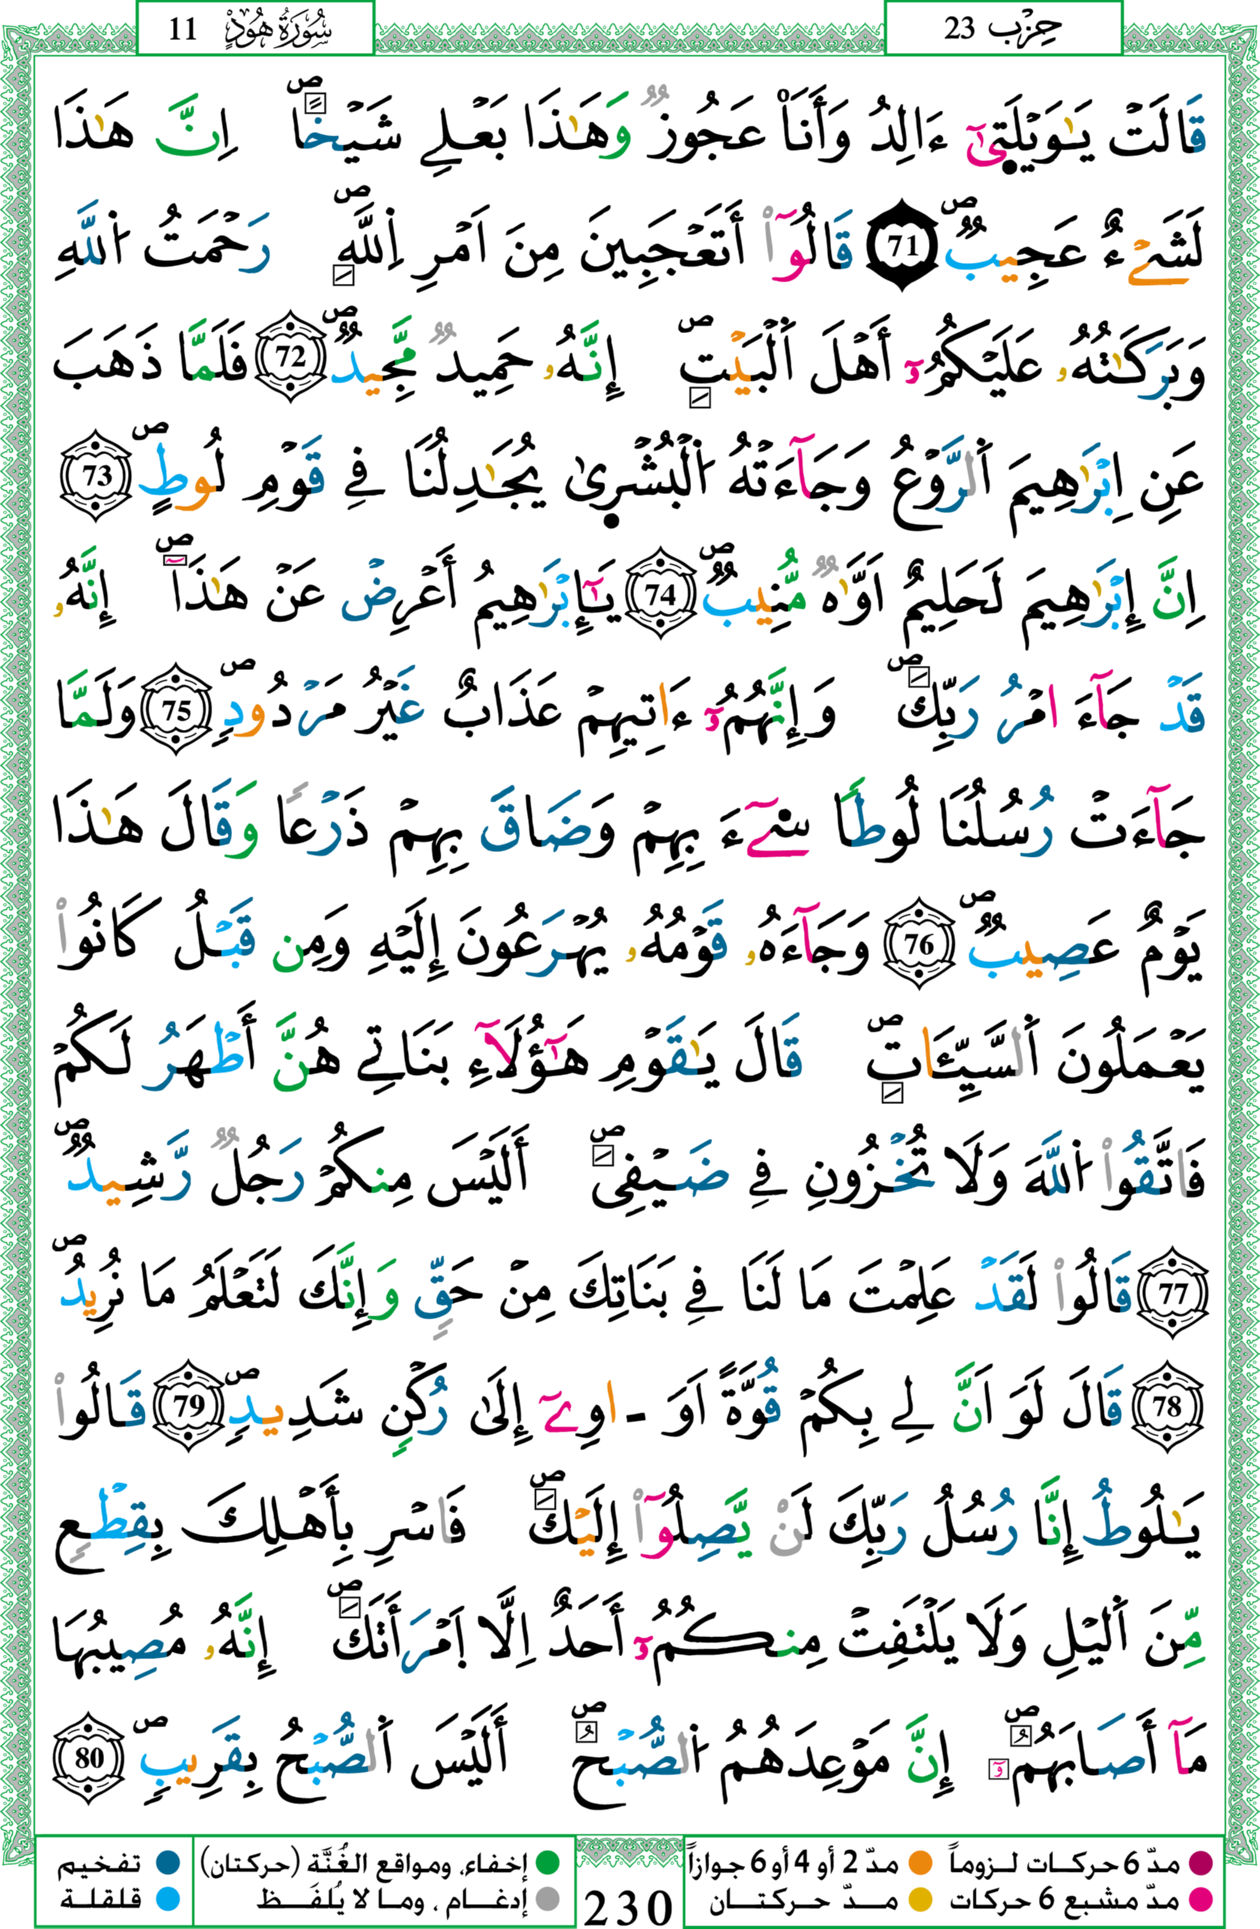 حِزْب 23
سُورَةُ هُودٍ 11
قَالَتْ يَٰوَيْلَت۪يٰٓ ءَالِدُ وَأَنَا۠ عَجُوزٞ وَهَٰذَا بَعْلِے شَيْخاًۖ اِنَّ هَٰذَا
لَشَےْءٌ عَجِيبٞۖ 71 قَالُوٓاْ أَتَعْجَبِينَ مِنَ اَمْرِ اِ۬للَّهِۖ رَحْمَتُ اُ۬للَّهِ
وَبَرَكَٰتُهُۥ عَلَيْكُمُۥٓ أَهْلَ اَ۬لْبَيْتِۖ إِنَّهُۥ حَمِيدٞ مَّجِيدٞۖ 72 فَلَمَّا ذَهَبَ
عَنِ اِبْرَٰهِيمَ اَ۬لرَّوْعُ وَجَآءَتْهُ اُ۬لْبُشْر۪يٰ يُجَٰدِلُنَا فِے قَوْمِ لُوطٍۖ 73
اِنَّ إِبْرَٰهِيمَ لَحَلِيمٌ اَوَّٰهٞ مُّنِيبٞۖ 74 يَٰٓإِبْرَٰهِيمُ أَعْرِضْ عَنْ هَٰذَآۖ إِنَّهُۥ
قَدْ جَآءَ امْرُ رَبِّكَۖ وَإِنَّهُمُۥٓ ءَاتِيهِمْ عَذَابٌ غَيْرُ مَرْدُودٖۖ 75 وَلَمَّا
جَآءَتْ رُسُلُنَا لُوطاٗ سِےٓءَ بِهِمْ وَضَاقَ بِهِمْ ذَرْعاٗ وَقَالَ هَٰذَا
يَوْمٌ عَصِيبٞۖ 76 وَجَآءَهُۥ قَوْمُهُۥ يُهْرَعُونَ إِلَيْهِ وَمِن قَبْلُ كَانُواْ
يَعْمَلُونَ اَ۬لسَّيِّـَٔاتِۖ قَالَ يَٰقَوْمِ هَٰٓؤُلَآءِ بَنَاتِے هُنَّ أَطْهَرُ لَكُمْ
فَاتَّقُواْ اُ۬للَّهَ وَلَا تُخْزُونِ فِے ضَيْفِيَۖ أَلَيْسَ مِنكُمْ رَجُلٞ رَّشِيدٞۖ
77 قَالُواْ لَقَدْ عَلِمْتَ مَا لَنَا فِے بَنَاتِكَ مِنْ حَقّٖ وَإِنَّكَ لَتَعْلَمُ مَا نُرِيدُۖ
78 قَالَ لَوَ اَنَّ لِے بِكُمْ قُوَّةً اَوَ ـ اوِےٓ إِلَىٰ رُكْنٖ شَدِيدٖۖ 79 قَالُواْ
يَٰلُوطُ إِنَّا رُسُلُ رَبِّكَ لَنْ يَّصِلُوٓاْ إِلَيْكَۖ فَاسْرِ بِأَهْلِكَ بِقِطْعٖ
مِّنَ اَ۬ليْلِ وَلَا يَلْتَفِتْ مِنكُمُۥٓ أَحَدٌ اِلَّا اَ۪مْرَأَتَكَۖ إِنَّهُۥ مُصِيبُهَا
مَآ أَصَابَهُمُۥٓۖ إِنَّ مَوْعِدَهُمُ اُ۬لصُّبْحُۖ أَلَيْسَ اَ۬لصُّبْحُ بِقَرِيبٖۖ 80
مدّ 6 حركات لـزوماً
مدّ 2 أو 4 أو 6 جوازاً
إخفاء، ومواقع الغُنَّة (حركتان)
تفخيم
مدّ مشبع 6 حركات
مــدّ حركتــان
إدغـام ، ومـا لا يُلفَـظ
قلقلة
230